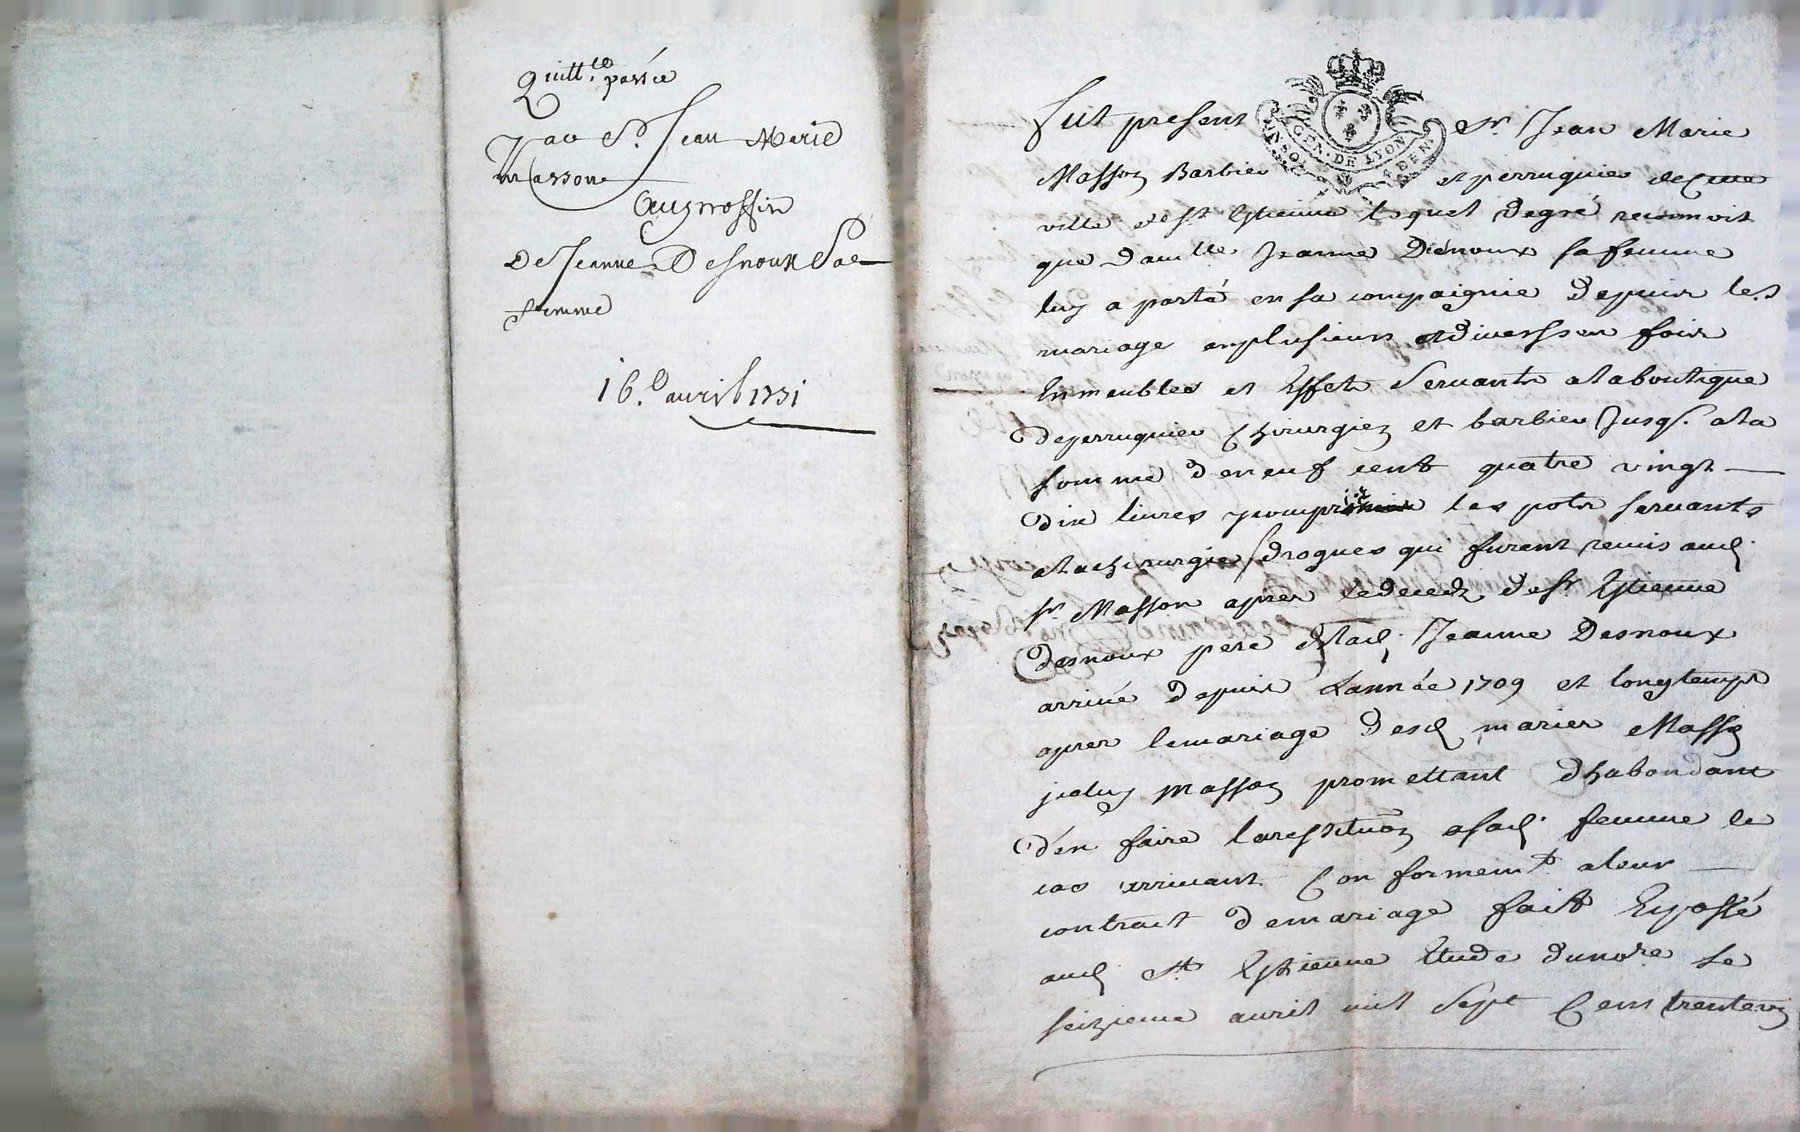 Quitt.ce passée
par Sr. Jean Marie
Masson
Au proffit
De Jeanne Desnoux Sa
femme
16.e avril 1731
GEN. DE LYON
Fut present Sr. Jean Marie
Masson Barbier et perruquier de cette
ville de St Estienne lequel de gré reconnoit
que dam.lle Jeanne Désnoux sa femme
luy a porté en sa compaignie depuis le.s
mariage en plusieurs et diversses fois
En meubles et Effets Servants a la boutique
de perruquier Chirurgien et barbier Jusq. a la
somme de neuf cent quatre vingt
dix livres y compris les pots servants
a la chirurgie drogues qui furent remis aud.
sr. Masson apres le decedz de sr Estienne
desnoux pere de lad. Jeanne Desnoux
arrivé depuis Lannée 1709 et longtemps
apres le mariage desd. mariez Masson
Masson promettant d'habondant
d'en faire la restituon a sad. femme le
cas arrivant Conforment a leur
contract de mariage fait Et passé
aud. St Estienne Etude du nore Le
seizieme avril mil Sept Cent trente un